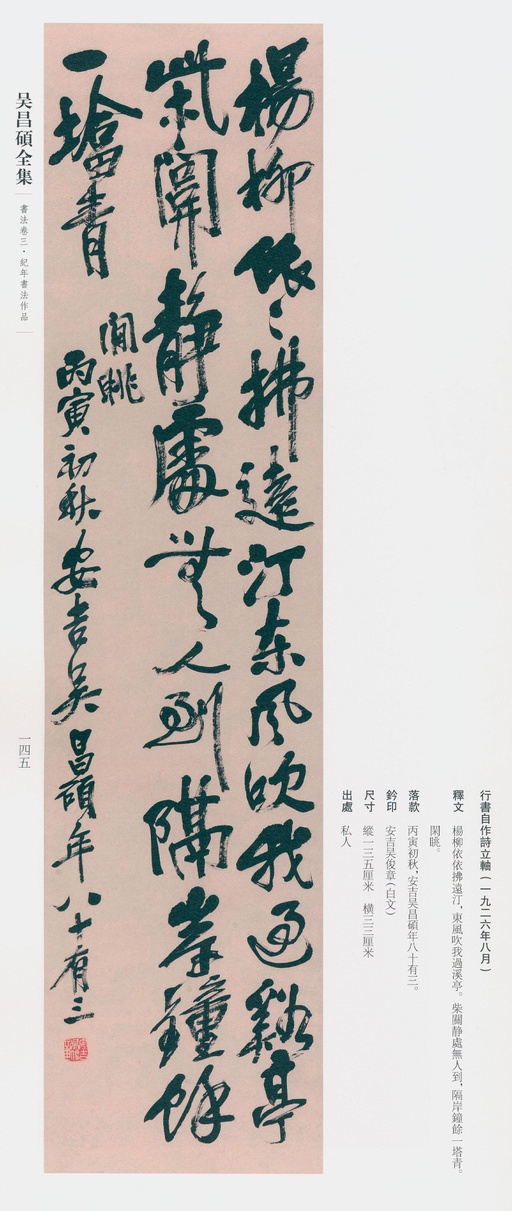 行書自作詩立軸（一九二六年八月）
釋文 楊柳依依拂遠汀，東風吹我過溪亭。柴關静處無人到，隔岸鐘餘一塔青。
閑眺。
落款 丙寅初秋，安吉吴昌碩年八十有三。
鈐印 安吉吴俊章（白文）
尺寸 縱一三五厘米 横三三厘米
出處 私人
楊柳依〻拂遠汀東風吹我過谿亭
柴關靜處無人到隔岸鐘餘
一塔青
閒眺
丙寅初秋安吉吴昌碩年八十有三
吴昌碩全集
書法卷三·紀年書法作品
一四五